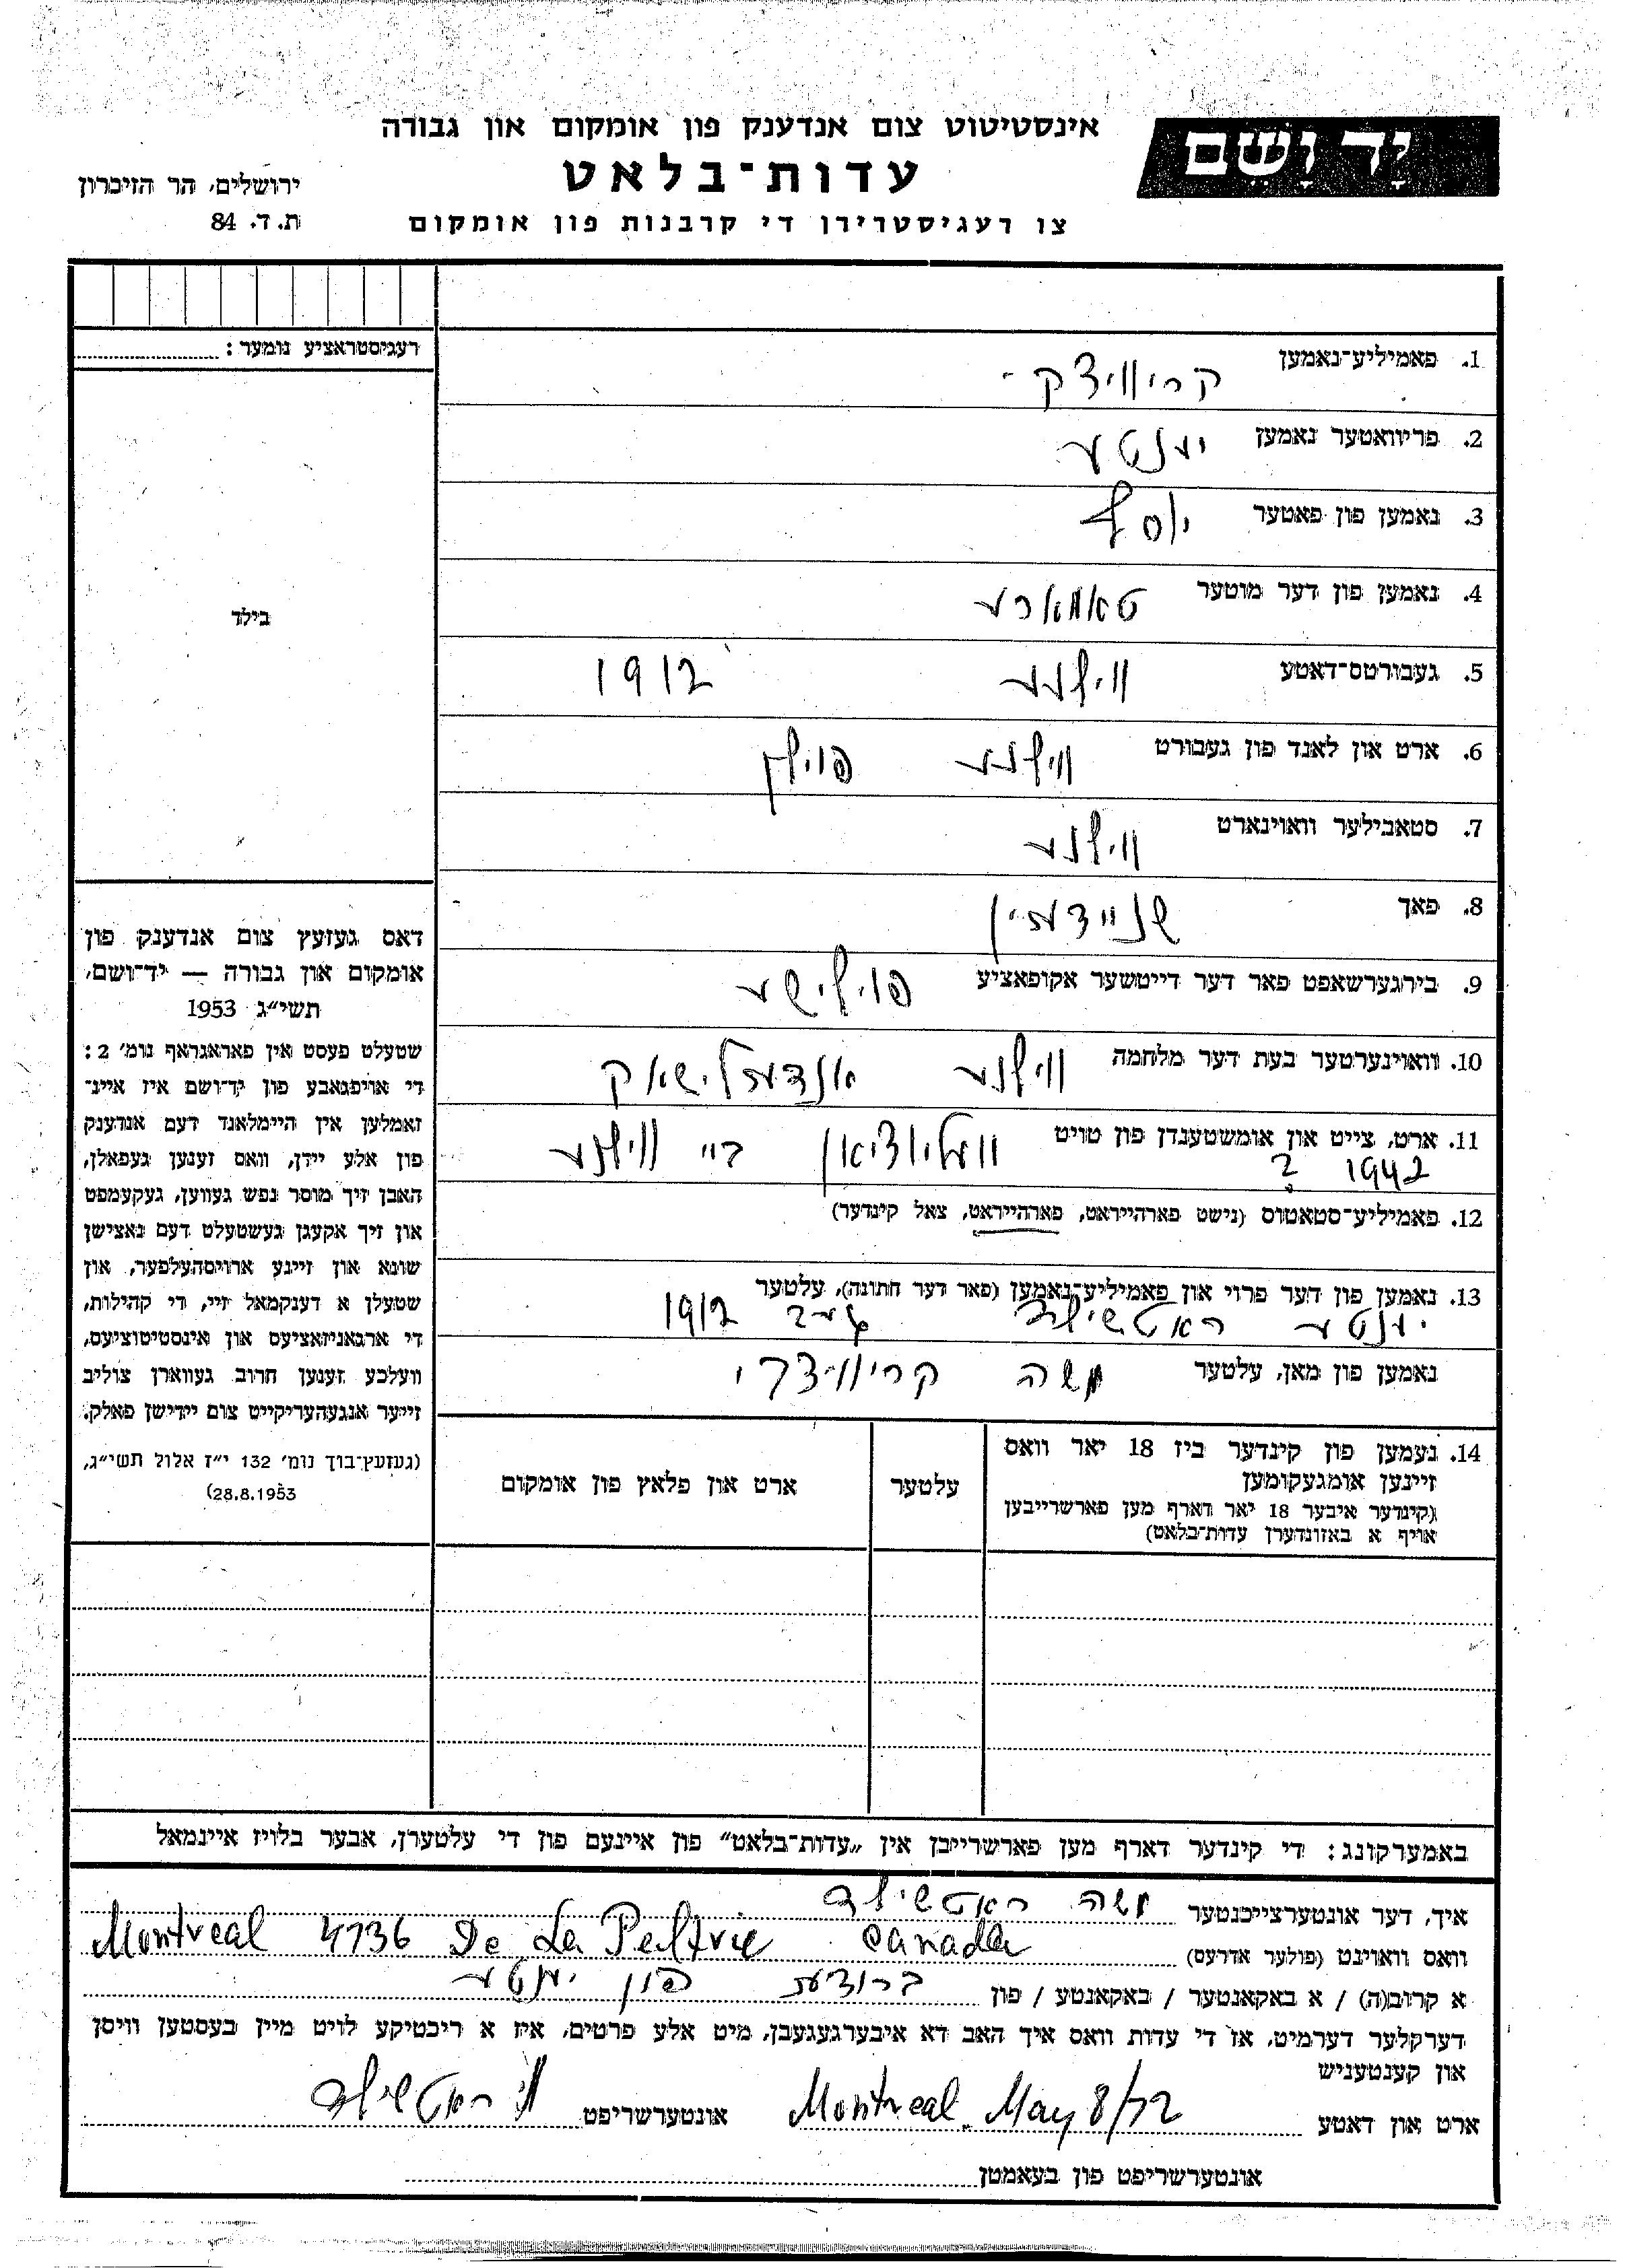 יד ושם
אינסטיטוט צום אנדענק פון אומקום און גבורה
עדות־בלאט
צו רעגיסטרירן די קרבנות פון אומקום
ירושלים, הר הזיכרון
ת. ד. 84
רעגיסטראציע נומער:
בילד
דאס געזעץ צום אנדענק פון
אומקום און גבורה — יד־ושם,
תשי״ג 1953
שטעלט פעסט אין פאראגראף נומ׳ 2:
די אויפגאבע פון יד־ושם איז איינ־
זאמלען אין היימלאנד דעם אנדענק
פון אלע יידן, וואס זענען געפאלן,
האבן זיך מוסר נפש געווען, געקעמפט
און זיך אקעגן געשטעלט דעם נאצישן
שונא און זיינע ארויסהעלפער, און
שטעלן א דענקמאל זיי, די קהילות,
די ארגאניזאציעס און אינסטיטוציעס,
וועלכע זענען חרוב געווארן צוליב
זייער אנגעהעריקייט צום יידישן פאלק.
(געזעץ־בוך נומ׳ 132 י״ז אלול תשי״ג,
28.8.1953)
1. פאמיליע־נאמען
2. פריוואטער נאמען יענטע
3. נאמען פון פאטער יוסף
4. נאמען פון דער מוטער טאמארע
5. געבורטס־דאטע ווילנע 1912
6. ארט און לאנד פון געבורט ווילנע פוילן
7. סטאבילער וואוינארט ווילנע
8. פאך שניידערין
9. בירגערשאפט פאר דער דייטשער אקופאציע פוילישע
10. וואוינערטער בעת דער מלחמה ווילנע
11. ארט, צייט און אומשטענדן פון טויט ביי ווילנע
1942 ?
12. פאמיליע־סטאטוס (נישט פארהייראט, פארהייראט, צאל קינדער)
13. נאמען פון דער פרוי און פאמיליע־נאמען (פאר דער חתונה), עלטער
יענטע ראטשילד געב 1912
נאמען פון מאן, עלטער משה קריוויצקי
14. נעמען פון קינדער ביז 18 יאר וואס
זיינען אומגעקומען
(קינדער איבער 18 יאר דארף מען פארשרייבן
אויף א באזונדערן עדות־בלאט)
עלטער
ארט און פלאץ פון אומקום
באמערקונג: די קינדער דארף מען פארשרייבן אין „עדות־בלאט״ פון איינעם פון די עלטערן, אבער בלויז איינמאל
איך, דער אונטערצייכנטער משה ראטשילד
וואס וואוינט (פולער אדרעס) Montreal 4736 De La Peltrie Canada
א קרוב(ה) / א באקאנטער / באקאנטע / פון ברודער פון יענטע
דערקלער דערמיט, אז די עדות וואס איך האב דא איבערגעגעבן, מיט אלע פרטים, איז א ריכטיקע לויט מיין בעסטען וויסן
און קענטעניש
ארט און דאטע Montreal. May 8/72 אונטערשריפט מ׳ ראטשילד
אונטערשריפט פון בעאמטן